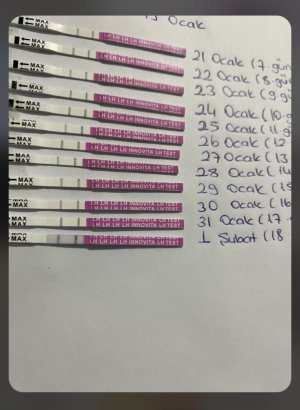 Ocak
MAX LH LH LH LH INNOVITA LH TEST
21 Ocak (7. gün
MAX LH LH LH LH INNOVITA LH TEST
22 Ocak (8. gü
MAX LH LH LH LH INNOVITA LH TEST
23 Ocak (9 gü
MAX LH LH LH LH INNOVITA LH TEST
24 Ocak (10.g
MAX LH LH LH LH INNOVITA LH TEST
25 Ocak (11.g
MAX LH LH LH LH INNOVITA LH TEST
26 Ocak (12
MAX LH LH LH LH INNOVITA LH TEST
27 Ocak (13
MAX LH LH LH LH INNOVITA LH TEST
28 Ocak (14
MAX LH LH LH LH INNOVITA LH TEST
29 Ocak (15
MAX LH LH LH LH INNOVITA LH TEST
30 Ocak (16
MAX LH LH LH LH INNOVITA LH TEST
31 Ocak (17.
MAX LH LH LH LH INNOVITA LH TEST
1 Şubat (18